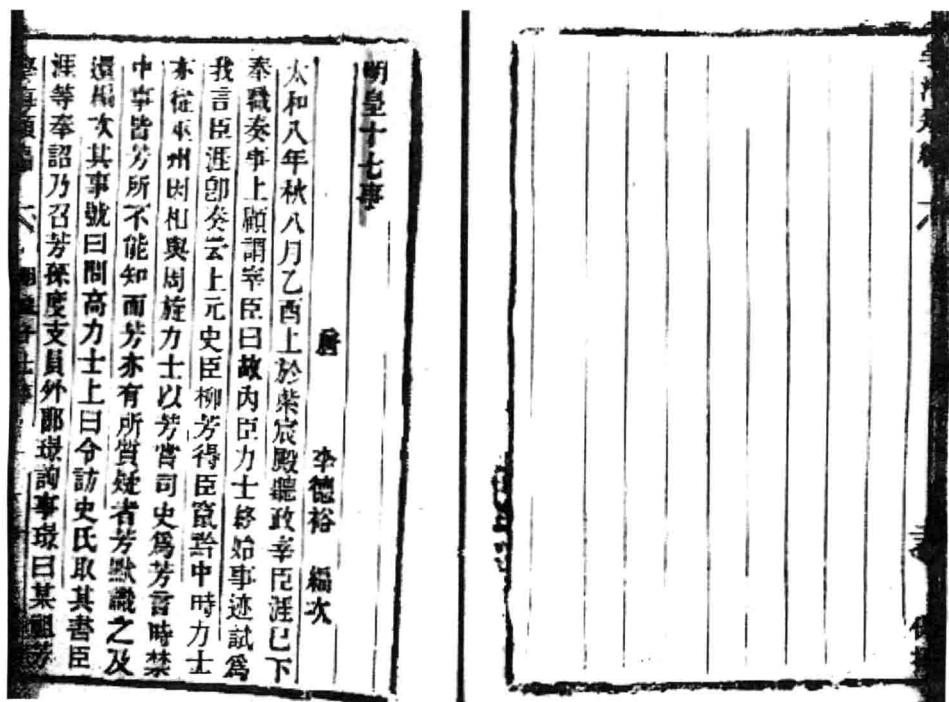 明皇十七事
唐 李德裕 編次
太和八年秋八月乙酉上於紫宸殿聽政宰臣涯已下
奉職奏事上顧謂宰臣曰故內臣力士終始事迹試爲
我言臣涯卽奏云上元史臣柳芳得臣竄黔中時力士
亦從巫州因相與周旋力士以芳嘗司史爲芳言時禁
中事皆芳所不能知而芳亦有所質疑者芳默識之及
還編次其事號曰問高力士上曰令訪史氏取其書臣
涯等奉詔乃召芳孫度支員外郎璟詢事璟曰某祖芳